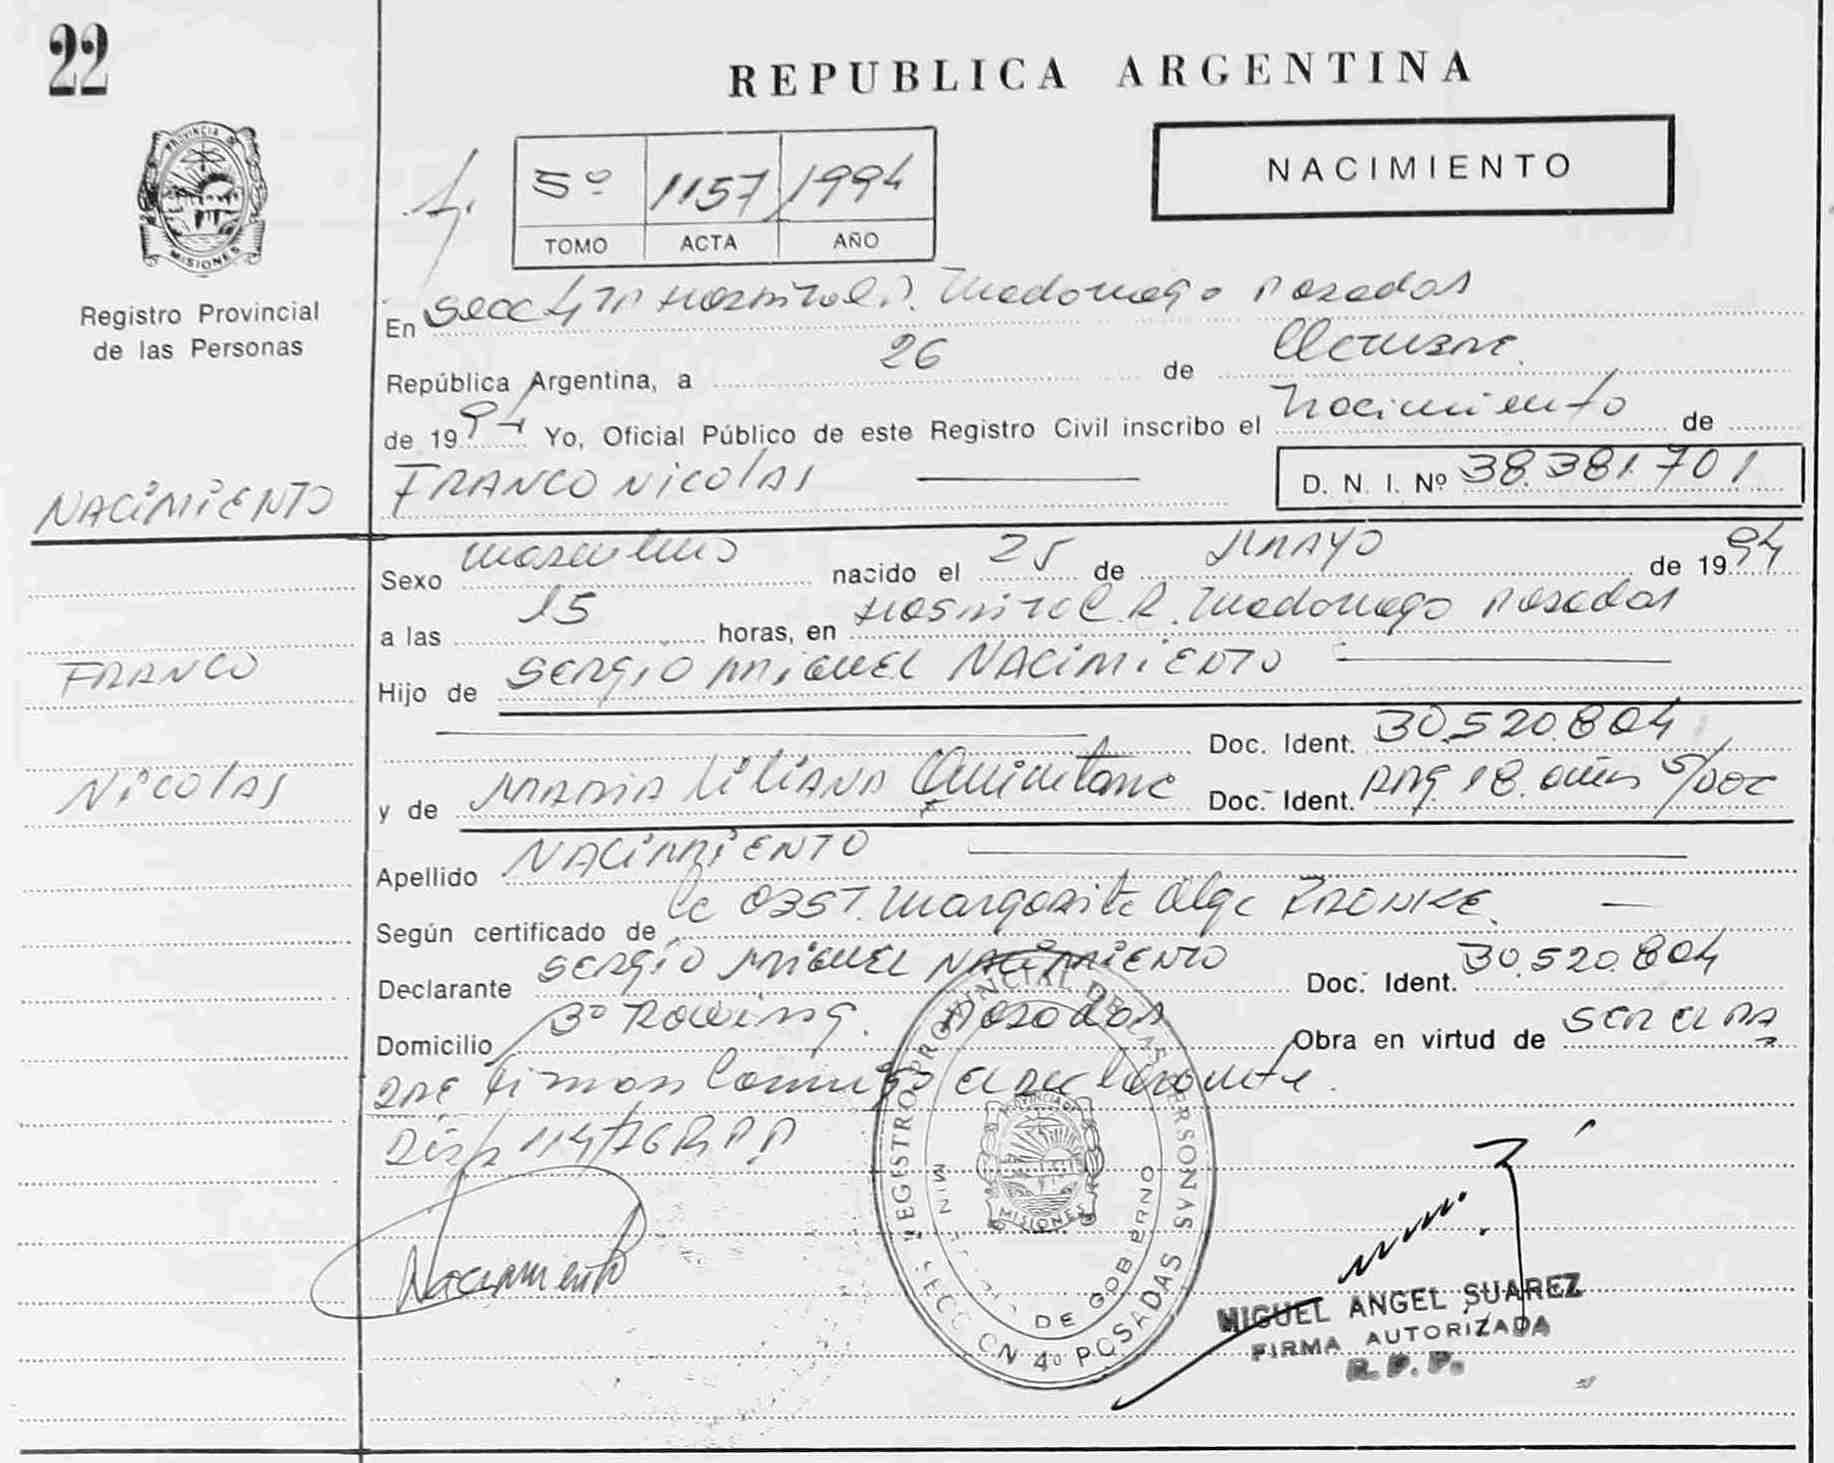 22
REPUBLICA ARGENTINA
PROVINCIA DE
MISIONES
Registro Provincial
de las Personas
5º 1157 1994
TOMO ACTA AÑO
NACIMIENTO
En Secc 4 Hospital R. Madariaga Posadas
República Argentina, a 26 de Octubre
de 1994 Yo, Oficial Público de este Registro Civil inscribo el Nacimiento de
NACIMIENTO
FRANCO NICOLAS
D. N. I. Nº 38.381.701
Sexo masculino nacido el 25 de MAYO de 1994
a las 15 horas, en Hospital R. Madariaga Posadas
FRANCO
Hijo de SERGIO MIGUEL NACIMIENTO
Doc. Ident. 30.520.804
NICOLAS
y de MARIA LILIANA Quintana Doc. Ident. ARG. 18 años S/DOC
Apellido NACIMIENTO
Según certificado de la OBST. Margarita Olga
Declarante SERGIO MIGUEL NACIMIENTO Doc. Ident. 30.520.804
Domicilio Bº Rowing. Posadas Obra en virtud de SER EL PA
DRE Firman Conmigo el declarante.
Disp 114/76 R P P
Nacimiento
REGISTRO PROVINCIAL DE LAS PERSONAS
DE GOBIERNO
PROVINCIA DE
MISIONES
SECCION 4º POSADAS
MIGUEL ANGEL SUAREZ
FIRMA AUTORIZADA
R. P. P.